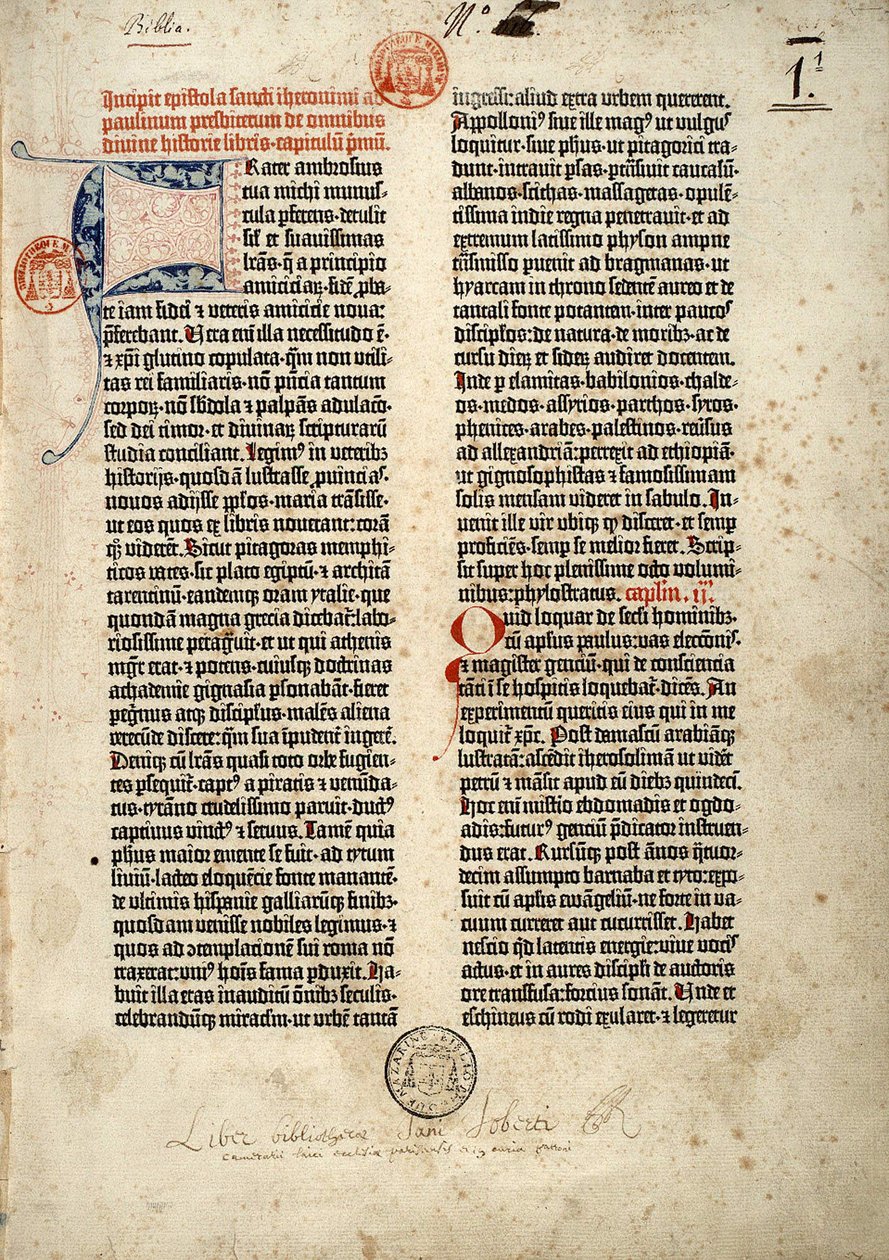 Biblia.
N°
1.
1
Incipit epistola sancti iheronimi ad
paulinum presbiterum de omnibus
divine historie libris. capitulū pꝛmū.
Frater ambrosius
tua michi munus-
cula ꝑferens. detulit
sił et suavissimas
lr̄as. q̄ a principio
amiciciaꝝ. fidē ꝓba-
te iam fidei ⁊ veteris amicicie nova:
p̄ferebant. Vera em̄ illa necessitudo ē.
⁊ xp̄i glutino copulata. qm̄ non utili-
tas rei familiaris. nō p̄ncia tantum
corpoꝝ. nō sb̄dola ⁊ palpās adulacō.
sed dei timor. et divinaꝝ scripturarū
studia conciliant. Legimꝰ in veteribꝫ
historijs. quosdā lustrasse ꝓvincias.
novos adijsse pp̄los. maria trāsisse.
ut eos quos ex libris noverant: corā
qꝫ viderēt. Sicut pitagoras memphi-
ticos vates. sic plato egiptū. ⁊ architā
tarentinū. eandemqꝫ oram ytalie. que
quondā magna grecia dicebat̄: labo-
riosissime peragravit. et ut qui athenis
mgr̄ erat. ⁊ potens. cuiusqꝫ doctrinas
achademie gignasia ꝑsonabāt. fieret
peg̃nus atqꝫ discipłus. malēs aliena
verecūde discere: qm̄ sua īpudent̄ ingerē.
Deniqꝫ cū lr̄as quasi toto orbe fugien-
tes ꝑsequit̄. captꝰ a piratis ⁊ venūda-
tus. tyrāno crudelissimo paruit. ductꝰ
captivus vinctꝰ ⁊ servus. Tamē quia
ph̄us maior emente se fuit. ad tytum
liviū. lacteo eloquēcie fonte manantē.
de ultimis hispanie galliarūqꝫ finibꝫ.
quosdam venisse nobiles legimus. ⁊
quos ad ↄtemplacionē sui roma nō
traxerat: uniꝰ hoīs fama ꝑduxit. Ha-
buit illa etas inauditū ōnibꝫ seculis.
celebrandūqꝫ miracłm. ut urbē tantā
ingressi: aliud extra urbem quererent.
Appolloniꝰ sive ille magꝰ ut vulgus
loquitur. sive ph̄us. ut pitagorici tra-
dunt. intravit ꝑsas. ꝑtrāsivit caucasū.
albanos. scithas. massagetas. opulē-
tissima indie regna penetravit. et ad
extremum latissimo physon ampne
trāsmisso ꝑvenit ad bragmanas. ut
hyarcam in throno sedentē aureo et de
tantali fonte potantem. inter paucos
discipłos: de natura. de moribꝫ. ac de
cursu dieꝝ et sideꝝ audiret docentem.
Inde ꝑ elamitas. babilonios. chalde-
os. medos. assyrios. parthos. syros.
phenices. arabes. palestinos. rev̄sus
ad allexandriā: perrexit ad ethiopiā.
ut gignosophistas ⁊ famosissimam
solis mensam videret in sabulo. In-
venit ille vir ubiqꝫ qꝫ disceret. et semꝑ
proficiēs. semꝑ se melior fieret. Scrip-
sit super hoc plenissime octo volumi-
nibus: phylostratus. capłm. ij.
Quid loquar de secłi hominibꝫ.
cū apłus paulus: vas elecc̄onis.
⁊ magister genciū. qui de consciencia
tāti ī se hospitis loquebat̄. dicēs. An
experimentū queritis eius qui in me
loquit̄ xp̄c. Post damascū arabiāqꝫ
lustratā: ascēdit iherosolimā ut vidēt
petrū ⁊ māsit apud eū diebꝫ quindecī.
Hoc em̄ mist̄io ebdomadis et ogdo-
adis: futurꝰ genciū p̄dicator instruen-
dus erat. Rursūqꝫ post ānos q̄tuor-
decim assumpto barnaba et tyto: expo-
suit cū apłis ewāgeliū. ne forte in va-
cuum curreret aut cucurrisset. Habet
nescio qd̄ latentis energie: vive vocis
actus. et in aures discipłi de auctoris
ore transfusa: forcius sonāt. Unde et
eschineus cū rodi exularet. ⁊ legeretur
Liber bibliothecæ
BIBLIOTHEQUE MAZARINE